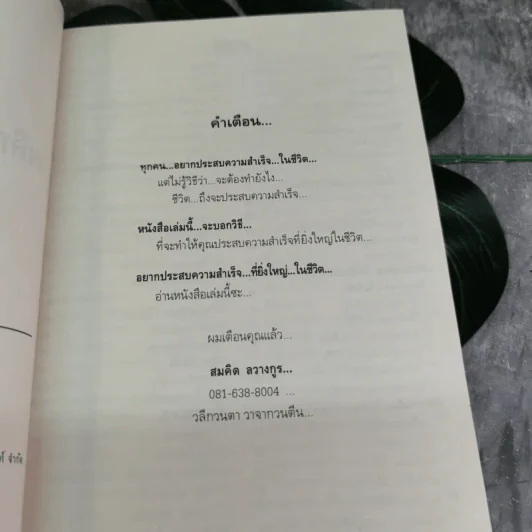 คำเตือน...
ทุกคน...อยากประสบความสำเร็จ...ในชีวิต...
แต่ไม่รู้วิธีว่า...จะต้องทำยังไง...
ชีวิต...ถึงจะประสบความสำเร็จ...
หนังสือเล่มนี้...จะบอกวิธี...
ที่จะทำให้คุณประสบความสำเร็จที่ยิ่งใหญ่ในชีวิต...
อยากประสบความสำเร็จ...ที่ยิ่งใหญ่...ในชีวิต...
อ่านหนังสือเล่มนี้ซะ...
ผมเตือนคุณแล้ว...
สมคิด ลวางกูร...
081-638-8004 ...
วลีกวนตา วาจากวนตีน...
จำกัด